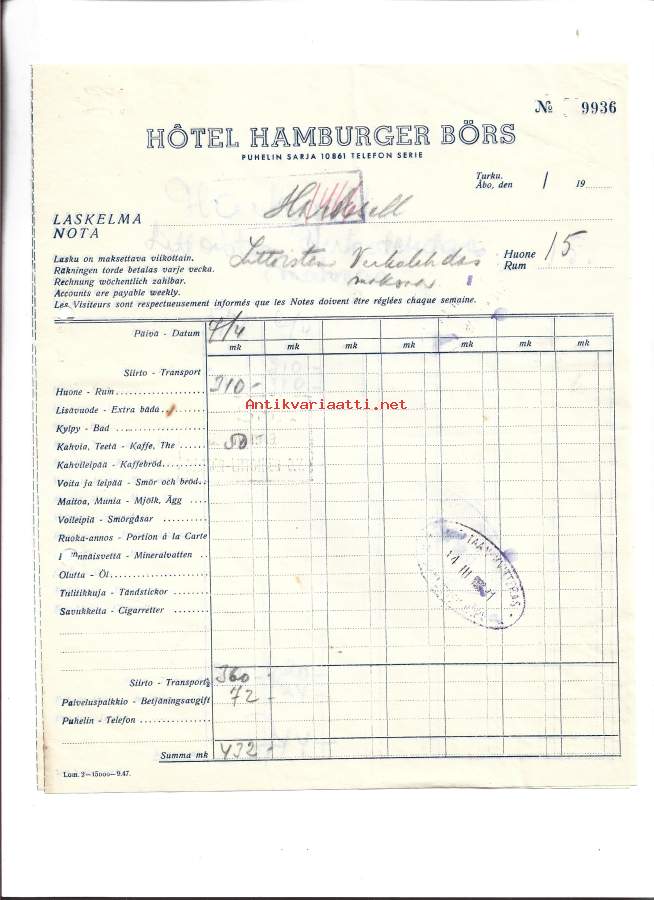 № 9936
HÔTEL HAMBURGER BÖRS
PUHELIN SARJA 10861 TELEFON SERIE
Turku.
Åbo, den / 19
LASKELMA
NOTA
Lasku on maksettava viikottain.
Räkningen torde betalas varje vecka.
Rechnung wöchentlich zahlbar.
Accounts are payable weekly.
Les Visiteurs sont respectueusement informés que les Notes doivent être réglées chaque semaine.
Huone
Rum 15
Päivä - Datum
mk mk mk mk mk mk mk
Siirto - Transport
Huone - Rum 310-
Antikvariaatti.net
Lisävuode - Extra bädd
Kylpy - Bad
Kahvia, Teetä - Kaffe, The 50
Kahvileipää - Kaffebröd
Voita ja leipää - Smör och bröd
Maitoa, Munia - Mjölk, Ägg
Voileipiä - Smörgåsar
Ruoka-annos - Portion à la Carte
Mineralvatten
Olutta - Öl
Tulitikkuja - Tändstickor
Savukkeita - Cigarretter
Siirto - Transport 360-
Palveluspalkkio - Betjäningsavgift 72-
Puhelin - Telefon
Summa mk 432-
Lom. 2-15000-9.47.